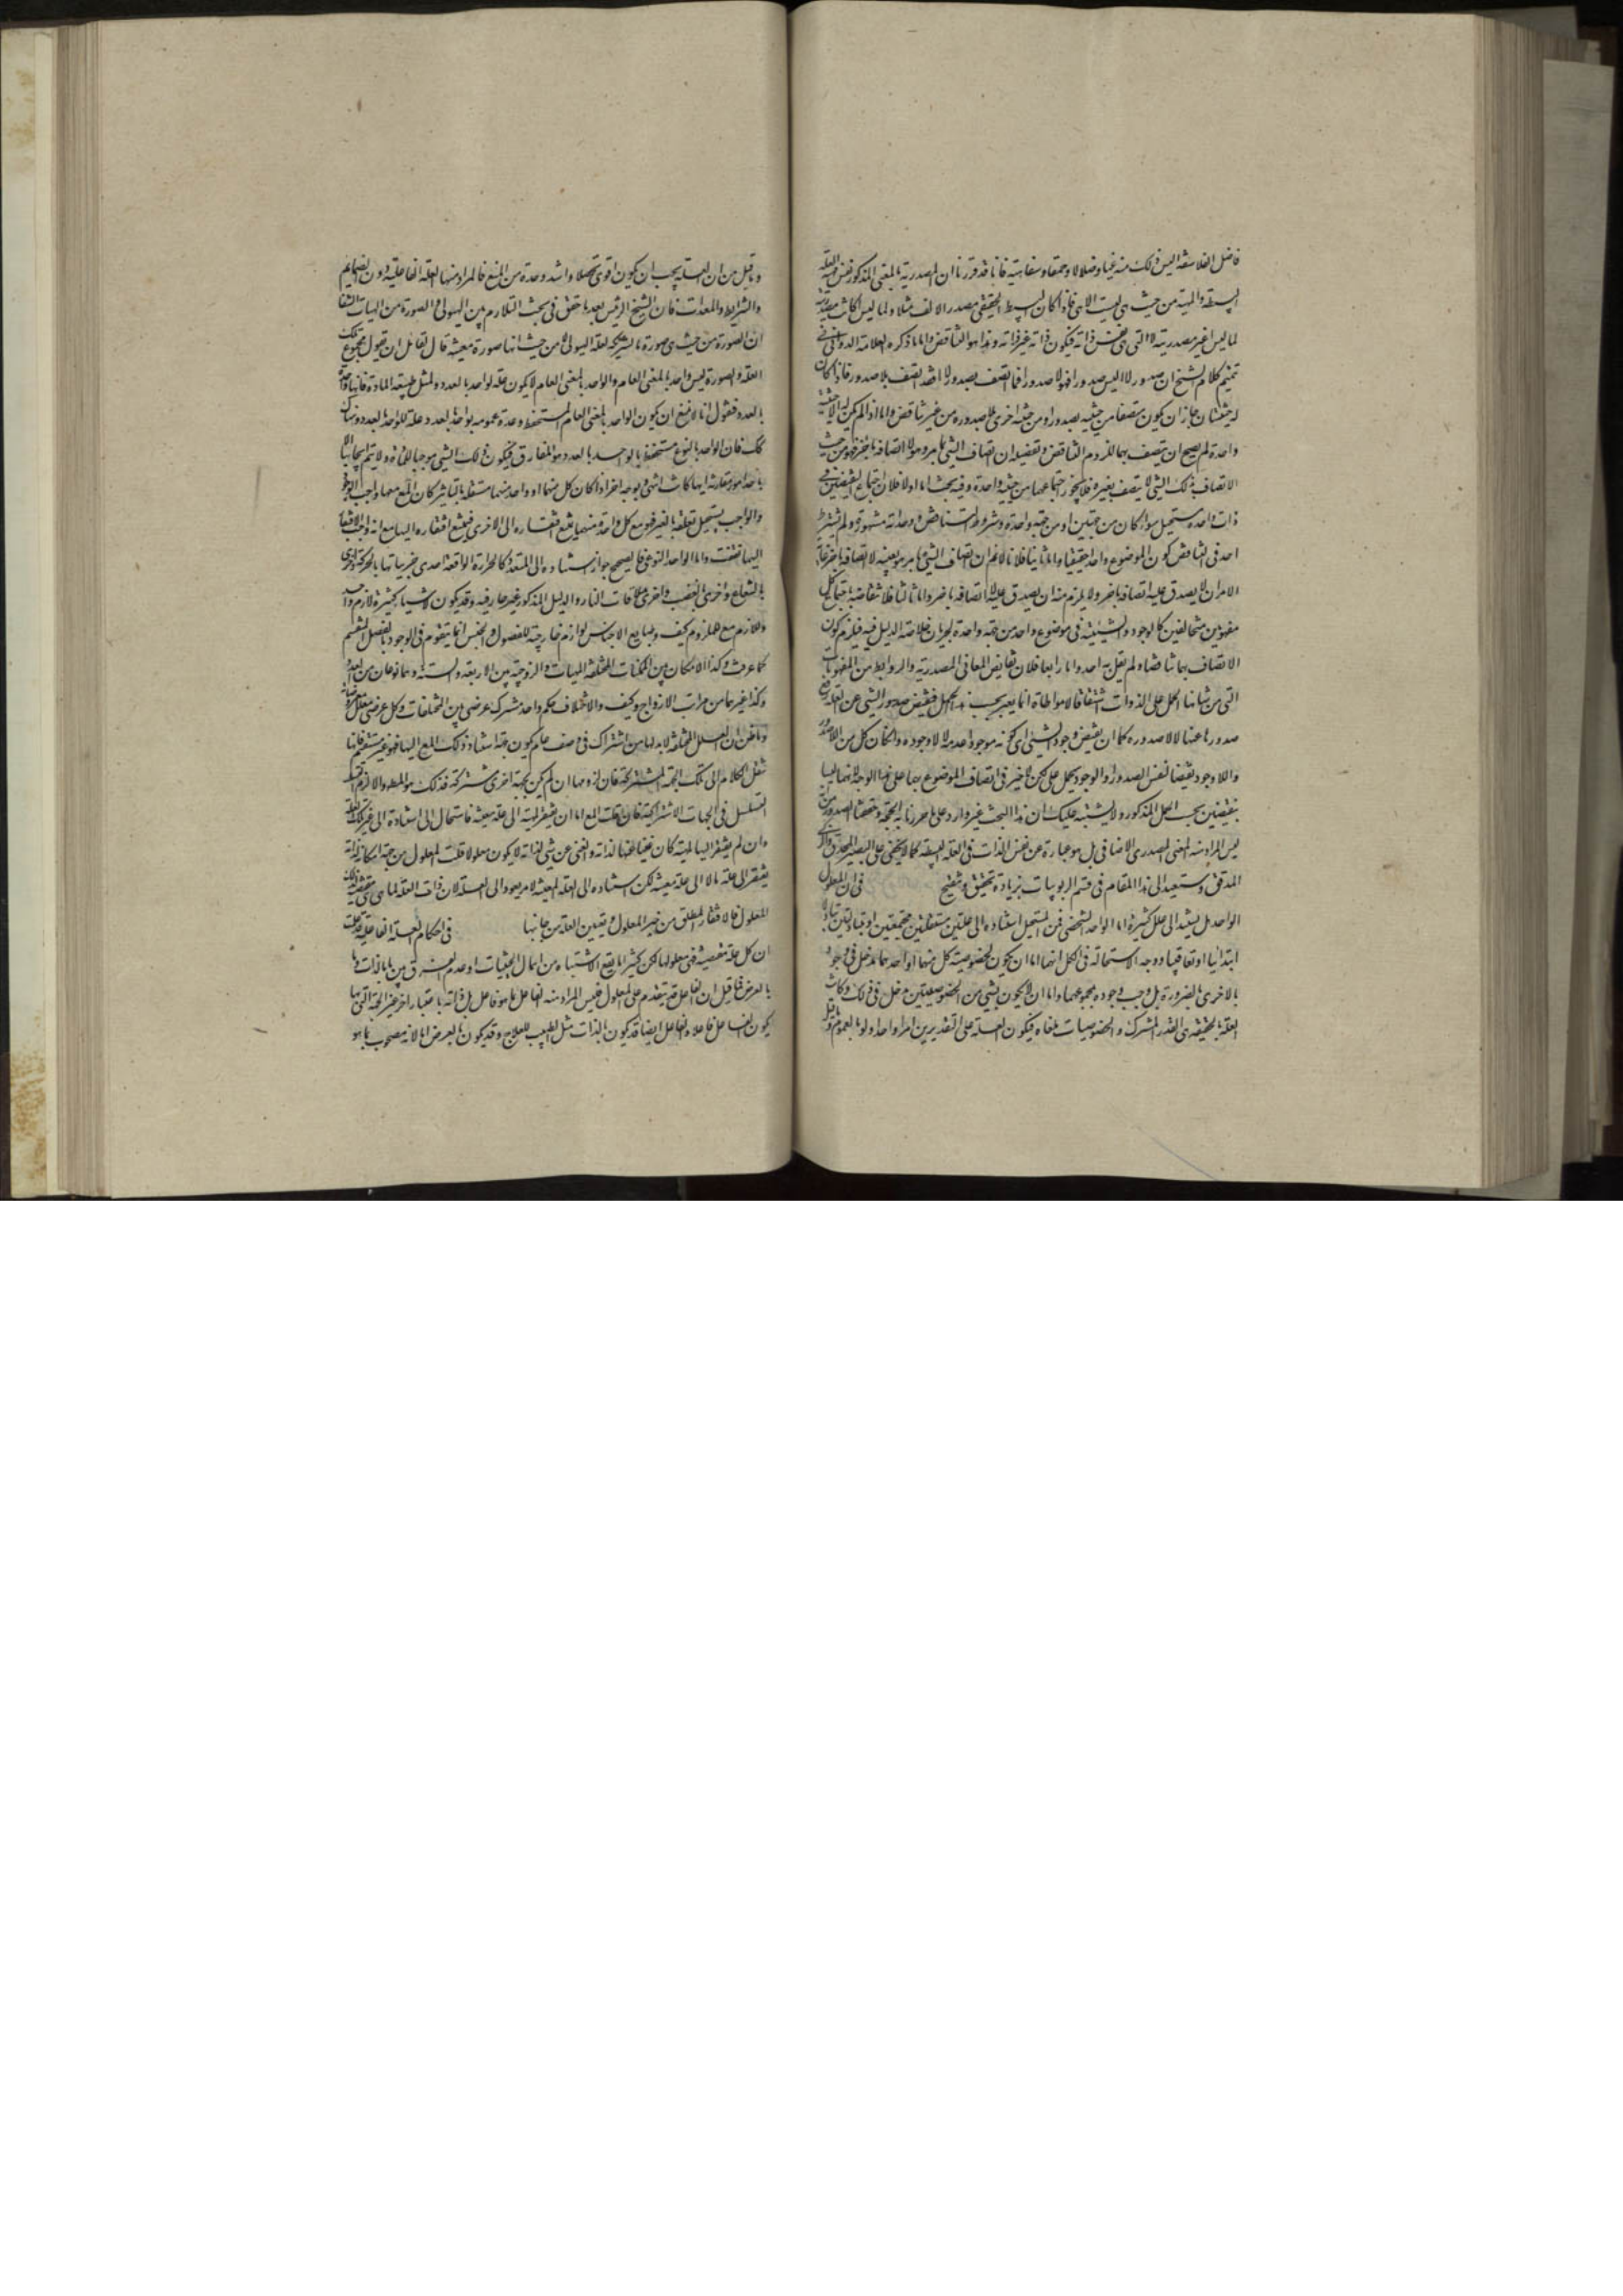 فاضل الفلاسفة اليس ذلك منه غيا وضلالا وحمقا وسفاهة فانا قد قررنا ان المصدرية بالمعنى المذكور نفس مهية العلة
البسيطة والمهية من حيث هي ليست الا هي فاذا كان البسيط الحقيقي مصدر الالف مثلا ولما ليس ا كانت مصدريته
لما ليس ا غير مصدريته لا التي هي نفس ذاته فيكون ذاته غير ذاته وهذا هو التناقض واما ما ذكره العلامة الدواني في
تتميم كلام الشيخ ان صدور لا ا ليس صدور ا فهو لا صدور ا فما اتصف بصدور لا ا فقد اتصف بلا صدور فاذا كان
له حيثيتان جاز ان يكون متصفا من حيثية بصدور ا ومن حيثية اخرى بلا صدوره من غير تناقض واما اذا لم يكن له الا حيثية
واحدة لم يصح ان يتصف بهما للزوم التناقض وتفصيله ان اتصاف الشيء بامر هو لا اتصافه باخر فهو من حيث
الاتصاف بذلك الشيء لا يتصف بغيره فلا يجوز اجتماعهما من حيثية واحدة وفيه بحث اما اولا فلان اجتماع النقيضين في
ذات واحدة مستحيل سواء كان من جهتين او من جهة واحدة وشروط التناقض وحداته مشهورة ولم يشترط
احد في التناقض كون الموضوع واحدا حقيقيا واما ثانيا فلانا لا نم ان اتصاف الشيء بامر هو بعينه لا اتصافه باخر غاية
الامر ان لا يصدق عليه اتصافه باخر ولا يلزم منه ان يصدق عليه لا اتصافه باخر واما ثالثا فلانتقاضه باجتماع كل
مفهومين متخالفين كالوجود والشيئية في موضوع واحد من جهة واحدة لجريان خلاصة الدليل فيه فيلزم كون
الاتصاف بهما تناقضا ولم يقل به احد واما رابعا فلان نقايض المعاني المصدرية والروابط من المفهومات
التي من شانها الحمل على الذوات اشتقاقا لا مواطاة انما يعتبر بحسب هذا الحمل فنقيض صدور الشيء عن العلة رفع
صدورها عنها لا لاصدوره كما ان نقيض وجود الشيء اي كونه موجودا عدمه لا لاوجوده وان كان كل من اللاصدور
واللاوجود نقيضا لنفس الصدور او الوجود بحمل على لكن لا ضير في اتصاف الموضوع بهما على هذا الوجه لانهما ليسا
بنقيضين بحسب الحمل المذكور ولا يشتبه عليك ان هذا البحث غير وارد على ما حررنا به الحجة ونقحنا الصدور من
ليس المراد منه المعنى المصدري الاضافي بل هو عبارة عن نفس الذات في العلة البسيطة كما لا يخفى على البصير المحدق والذكي
المدقق وستعيد الى هذا المقام في قسم الربوبيات بزيادة تحقيق وتنقيح في ان المعلول
الواحد هل يستند الى علل كثيرة اما الواحد الشخصي فمن المستحيل استناده الى علتين مستقلتين مجتمعتين او متبادلتين تبادلا
ابتدائيا او تعاقبيا ووجه الاستحالة في الكل انهما اما ان يكون لخصوصية كل منهما او احدهما مدخل في وجود
بالاخرى بالضرورة بل وجب وجوده بمجموعهما واما ان لا يكون بشيء من الخصوصيتين مدخل في ذلك وكانت
العلة بالحقيقة هي القدر المشترك والخصوصيات ملغاة فيكون العلة على التقديرين امرا واحدا ولو بالعموم وما قيل
وما قيل من ان العلة يجب ان يكون اقوى تحصلا واشد وحدة من المنع فالمراد منها العلة الفاعلية دون الضمايم
والشرايط والمعدات فان الشيخ الرئيس بعد ما حقق في بحث التلازم بين الهيولى والصورة من الهيات الشفا
ان الصورة من حيث هي صورة ما شريكة لعلة الهيولى لا من حيث انها صورة معينة قال لقائل ان يقول مجموع تلك
العلة والصورة ليس واحدا بالمعنى العام والواحد بالمعنى العام لا يكون علة لواحد بالعدد ولمثل طبيعة المادة فانها واحدة
بالعدد فنقول انا لا نمنع ان يكون الواحد بالمعنى العام المستحفظ وحدة عمومه بواحد بالعدد علة للواحد بالعدد وهناك
كك فان الواحد بالنوع مستحفظ بالواحد بالعدد هو المفارق فيكون ذلك الشيء موجبا للمادة ولا يتم ايجابها الا
باحد امور مقارنة ايها كانت انتهى وبوجه اخر اذا كان كل منهما او واحد منهما مستقلة بالتاثير كان المع معها واجب الوجود
والواجب يستحيل تعلقه بالغير فهو مع كل واحدة منهما يمتنع افتقاره الى الاخرى فيمتنع افتقاره اليها مع انه واجب الافتقار
اليهما هف واما الواحد النوعي فالصحيح جواز استناده الى المتعدد كالحرارة الواقعة احدى جزئياتها بالحركة واخرى
بالشعاع واخرى بالغضب واخرى بملاقات النار والدليل المذكور غير جار فيه وقد يكون لاشياء كثيرة لازم واحد
واللازم مع الملزوم كيف وطبايع الاجناس لوازم خارجية للفصول والجنس انما يتقوم في الوجود بالفصل المقسم
كما عرفت وكذا الامكان بين الممكنات المختلفة المهيات والزوجية بين الاربعة والستة وهما نوعان من العدد
وكذا غيرهما من مراتب الازواج وكيف والاختلاف حكم واحد مشترك عرضي بين المختلفات وكل عرضي معلل بمعروضاته
وما ظن ان العلل المختلفة لا بد لها من اشتراك في وصف عام يكون جهة استناد ذلك المع اليها فهو غير مستقيم فانا
ننقل الكلام الى تلك الجهة المشتركة فان لزومها ان لم يكن بجهة اخرى مشتركة فذلك هو المط والا لزم
التسلسل في الجهات الاشتراكية فان قلت المع اما ان يفتقر لمهيته الى علة معينة فاستحال استناده الى غير تلك العلة
وان لم يفتقر اليها لمهيته كان غنيا عنها لذاته والغني عن شيء لذاته لا يكون معلولا له قلت المعلول من جهة امكانه لذاته
يفتقر الى علة ما لا الى علة معينة لكن استناده الى العلة المعينة لا مر يعود الى العلة لان ذات العلة لما هي هي مقتضية لذلك
المعلول فالافتقار المطلق من حيز المعلول وتعيين العلة من جانبها في احكام العلة الفاعلية قد علمت
ان كل علة مقتضية فهي مع معلولها لكن كثيرا ما يقع الاشتباه من اهمال الحيثيات او عدم الفرق بين ما بالذات وما
بالعرض فما قيل ان الفاعل قد يتقدم على المعلول فليس المراد منه الفاعل بما هو فاعل بل ذاته باعتبار اخر غير الجهة التي بها
يكون الفاعل فاعلا والفاعل ايضا قد يكون بالذات مثل الطبيب للعلاج وقد يكون بالعرض اما لانه مصحوب بما هو